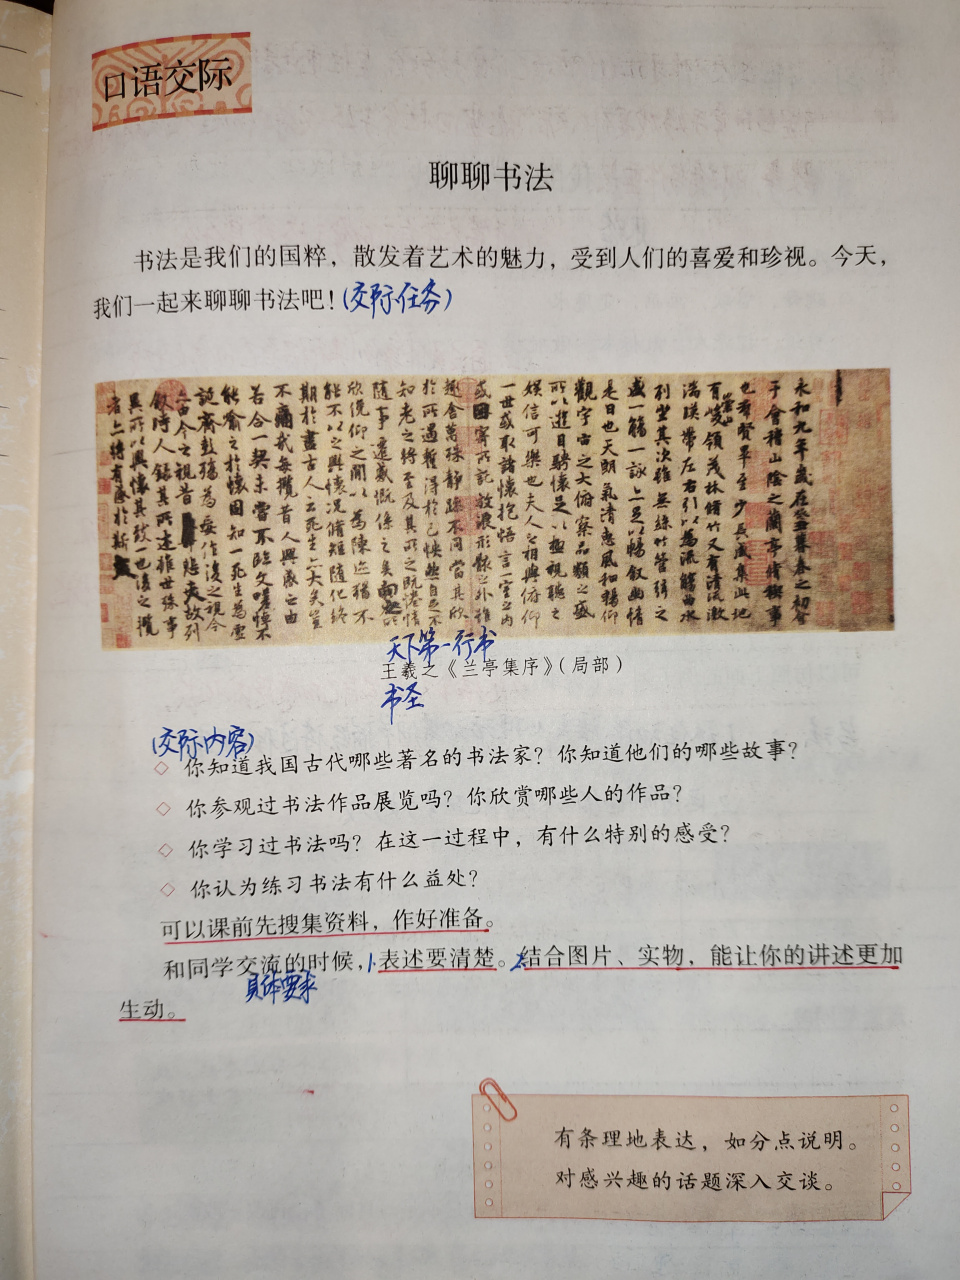 口语交际
聊聊书法
书法是我们的国粹，散发着艺术的魅力，受到人们的喜爱和珍视。今天，
我们一起来聊聊书法吧！(交际任务)
永和九年歲在癸丑暮春之初會
于會稽山陰之蘭亭脩稧事
也群賢畢至少長咸集此地
有崇山峻領茂林脩竹又有清流激
湍暎帶左右引以為流觴曲水
列坐其次雖無絲竹管弦之
盛一觴一詠亦足以暢叙幽情
是日也天朗氣清惠風和暢仰
觀宇宙之大俯察品類之盛
所以遊目騁懷足以極視聽之
娛信可樂也夫人之相與俯仰
一世或取諸懷抱悟言一室之內
或因寄所託放浪形骸之外雖
趣舍萬殊靜躁不同當其欣
於所遇暫得於己怏然自足不
知老之將至及其所之既惓情
隨事遷感慨係之矣向之所
欣俛仰之閒以為陳迹猶不
能不以之興懷況脩短隨化終
期於盡古人云死生亦大矣豈
不痛哉每攬昔人興感之由
若合一契未嘗不臨文嗟悼不
能喻之於懷固知一死生為虛
誕齊彭殤為妄作後之視今
亦由今之視昔悲夫故列
叙時人錄其所述雖世殊事
異所以興懷其致一也後之攬
者亦將有感於斯文
天下第一行书
王羲之《兰亭集序》（局部）
书圣
(交际内容)
◇ 你知道我国古代哪些著名的书法家？你知道他们的哪些故事？
◇ 你参观过书法作品展览吗？你欣赏哪些人的作品？
◇ 你学习过书法吗？在这一过程中，有什么特别的感受？
◇ 你认为练习书法有什么益处？
可以课前先搜集资料，作好准备。
和同学交流的时候，1.表述要清楚。2.结合图片、实物，能让你的讲述更加
具体要求
生动。
有条理地表达，如分点说明。
对感兴趣的话题深入交谈。